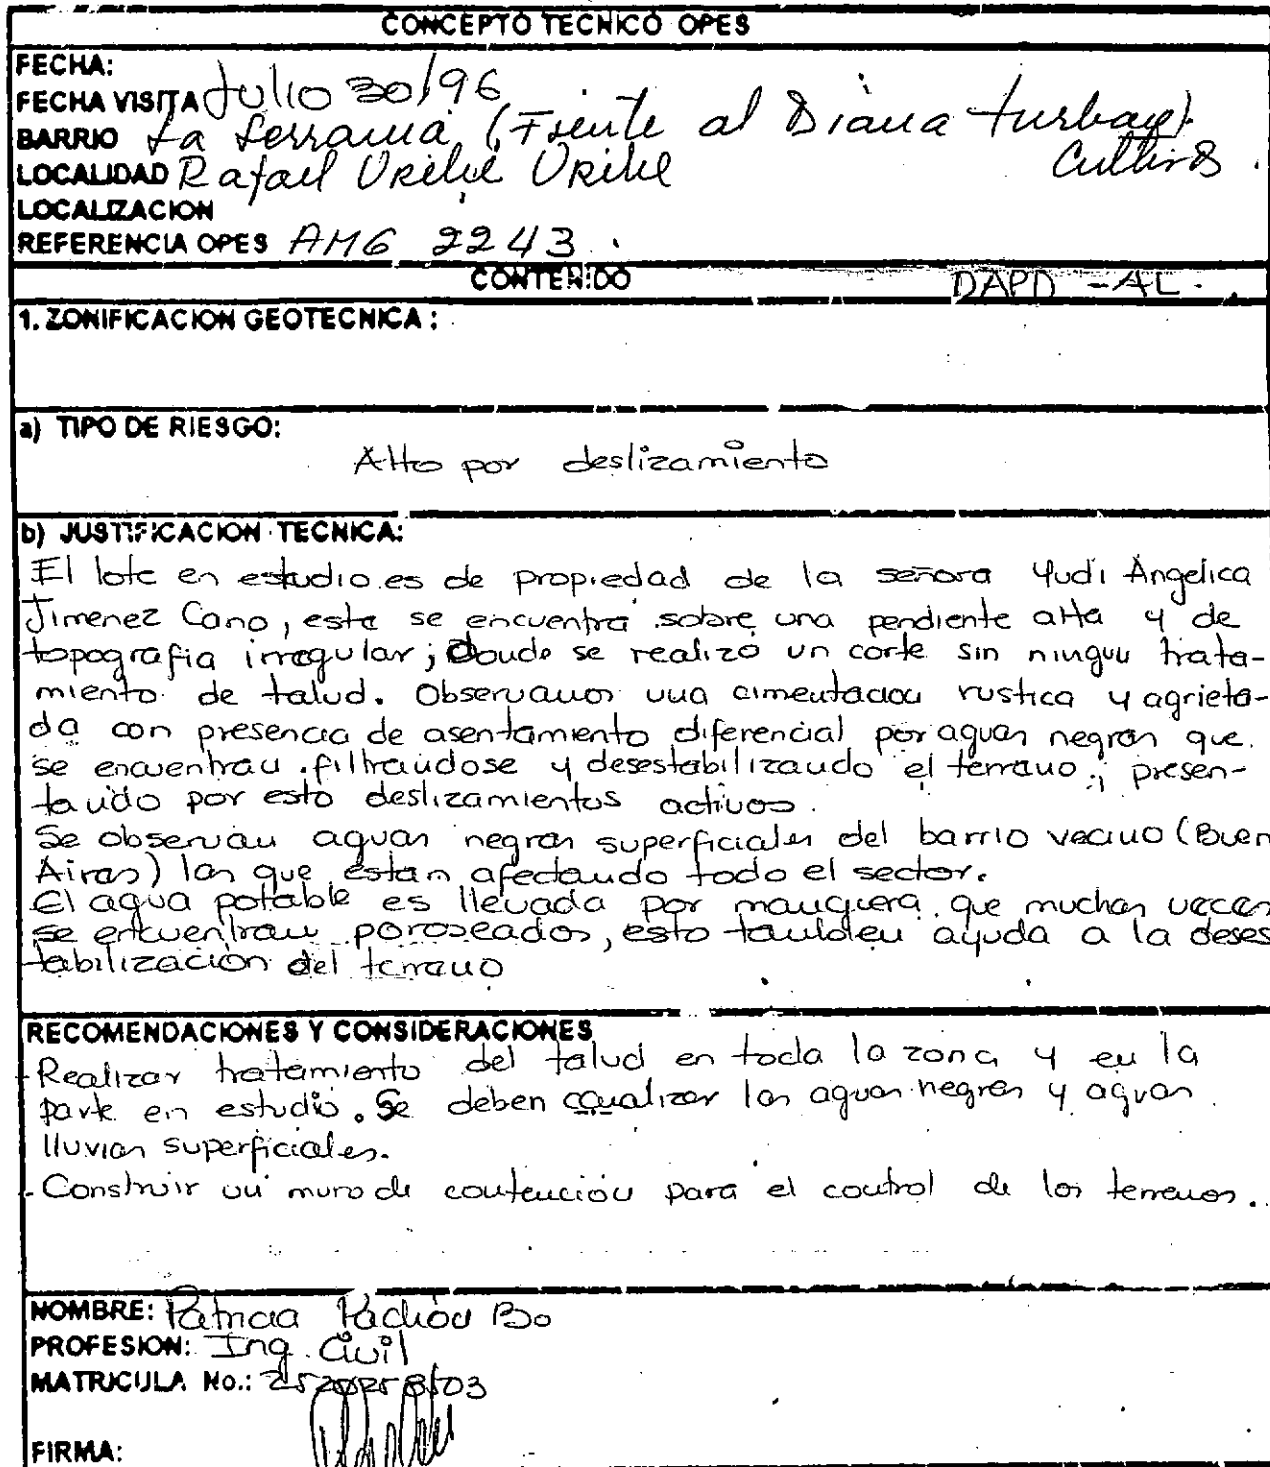 CONCEPTO TECNICO OPES
FECHA:
FECHA VISITA Julio 30/96
BARRIO La Serrania (Frente al Diana turbay)
Cultivos.
LOCALIDAD Rafael Uribe Uribe
LOCALIZACION
REFERENCIA OPES AMG 2243.
CONTENIDO DAPD - AL.
1. ZONIFICACION GEOTECNICA:
a) TIPO DE RIESGO:
Alto por deslizamiento
b) JUSTIFICACION TECNICA:
El lote en estudio es de propiedad de la señora Yudi Angelica
Jimenez Cano, este se encuentra sobre una pendiente alta y de
topografia irregular; donde se realizó un corte sin ningun trata-
miento de talud. Observamos una cimentacion rustica y agrieta-
da con presencia de asentamiento diferencial por aguas negras que
se encuentran filtrandose y desestabilizando el terreno; presen-
tando por esto deslizamientos activos.
Se observan aguas negras superficiales del barrio vecino (Buen
Aires) las que estan afectando todo el sector.
El agua potable es llevada por manguera que muchas veces
se encuentran poroseados, esto tambien ayuda a la deses
tabilización del terreno
RECOMENDACIONES Y CONSIDERACIONES
- Realizar tratamiento del talud en toda la zona y en la
parte en estudio. Se deben canalizar las aguas negras y aguas
lluvias superficiales.
- Construir un muro de contención para el control de los terrenos.
NOMBRE: Patricia Pachón Bo
PROFESION: Ing. Civil
MATRICULA No.:
FIRMA: